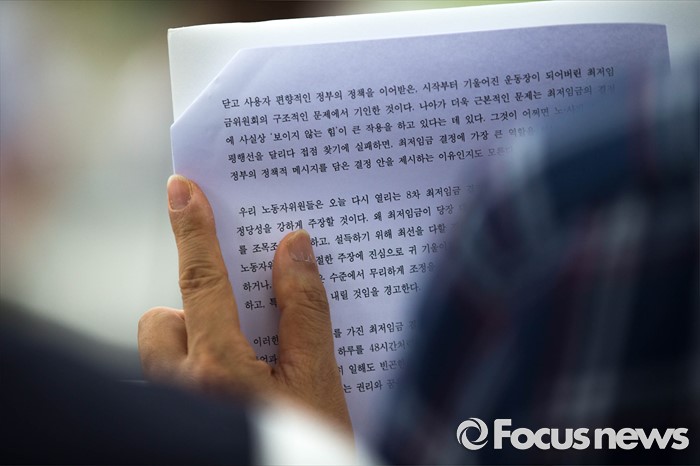 닫고 사용자 편향적인 정부의 정책을 이어받은, 시작부터 기울어진 운동장이 되어버린 최저임
금위원회의 구조적인 문제에서 기인한 것이다. 나아가 더욱 근본적인 문제는 최저임금의 결정
에 사실상 '보이지 않는 힘'이 큰 작용을 하고 있다는 데 있다. 그것이 어쩌면
평행선을 달리다 접점 찾기에 실패하면, 최저임금 결정에 가장 큰 역할을
정부의 정책적 메시지를 담은 결정 안을 제시하는 이유인지도
우리 노동자위원들은 오늘 다시 열리는 8차 최저임금
정당성을 강하게 주장할 것이다. 왜 최저임금이 당장
를 조목조 하고, 설득하기 위해 최선을 다할
노동자위 절한 주장에 진심으로 귀 기울
하거나, 수준에서 무리하게 조정을
하고, 특 내릴 것임을 경고한다.
이러한 를 가진 최저임금
하루를 48시간처
일해도 빈곤
는 권리와
Focus news